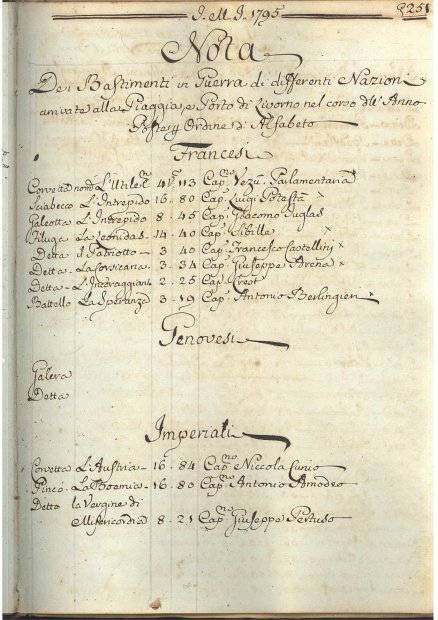 J. M. J. 1795 251
Nota
Dei Bastimenti in Guerra di differenti Nazioni
arrivate alla Piaggia, e Porto di Livorno nel corso dell' Anno
Poste p Ordine di Alfabeto
Francesi
Corvetta nom.a L'Utile 113 Cap.no Parlamentaria
Sciabecco L'Intrepido 16 - 80 Cap. Luigi Potestà
Galeotta L'Intrepido 8 - 45 Cap. Giacomo Suglas
Filuga La Leonidas - 14 - 40 Cap. Sibille
Detta il Patriotto - 3 40 Cap. Francesco Castellini
Detta - La Corsicana - 3 - 34 Cap. Giuseppe Arena
Detta - L'Incoraggiante 2 - 25 Cap. Crest
Battello La Speranza 3 - 19 Cap. Antonio Berlingieri
Genovesi
Galera
Detta
Imperiali
Corvetta L'Austria - 16 - 84 Cap.no Niccola Cunio
Pinco - La Boemia - 16 - 80 Cap. Antonio Amodeo
Detto la Vergine di
Misericordia 8 - 21 Cap.no Giuseppe Pertuso